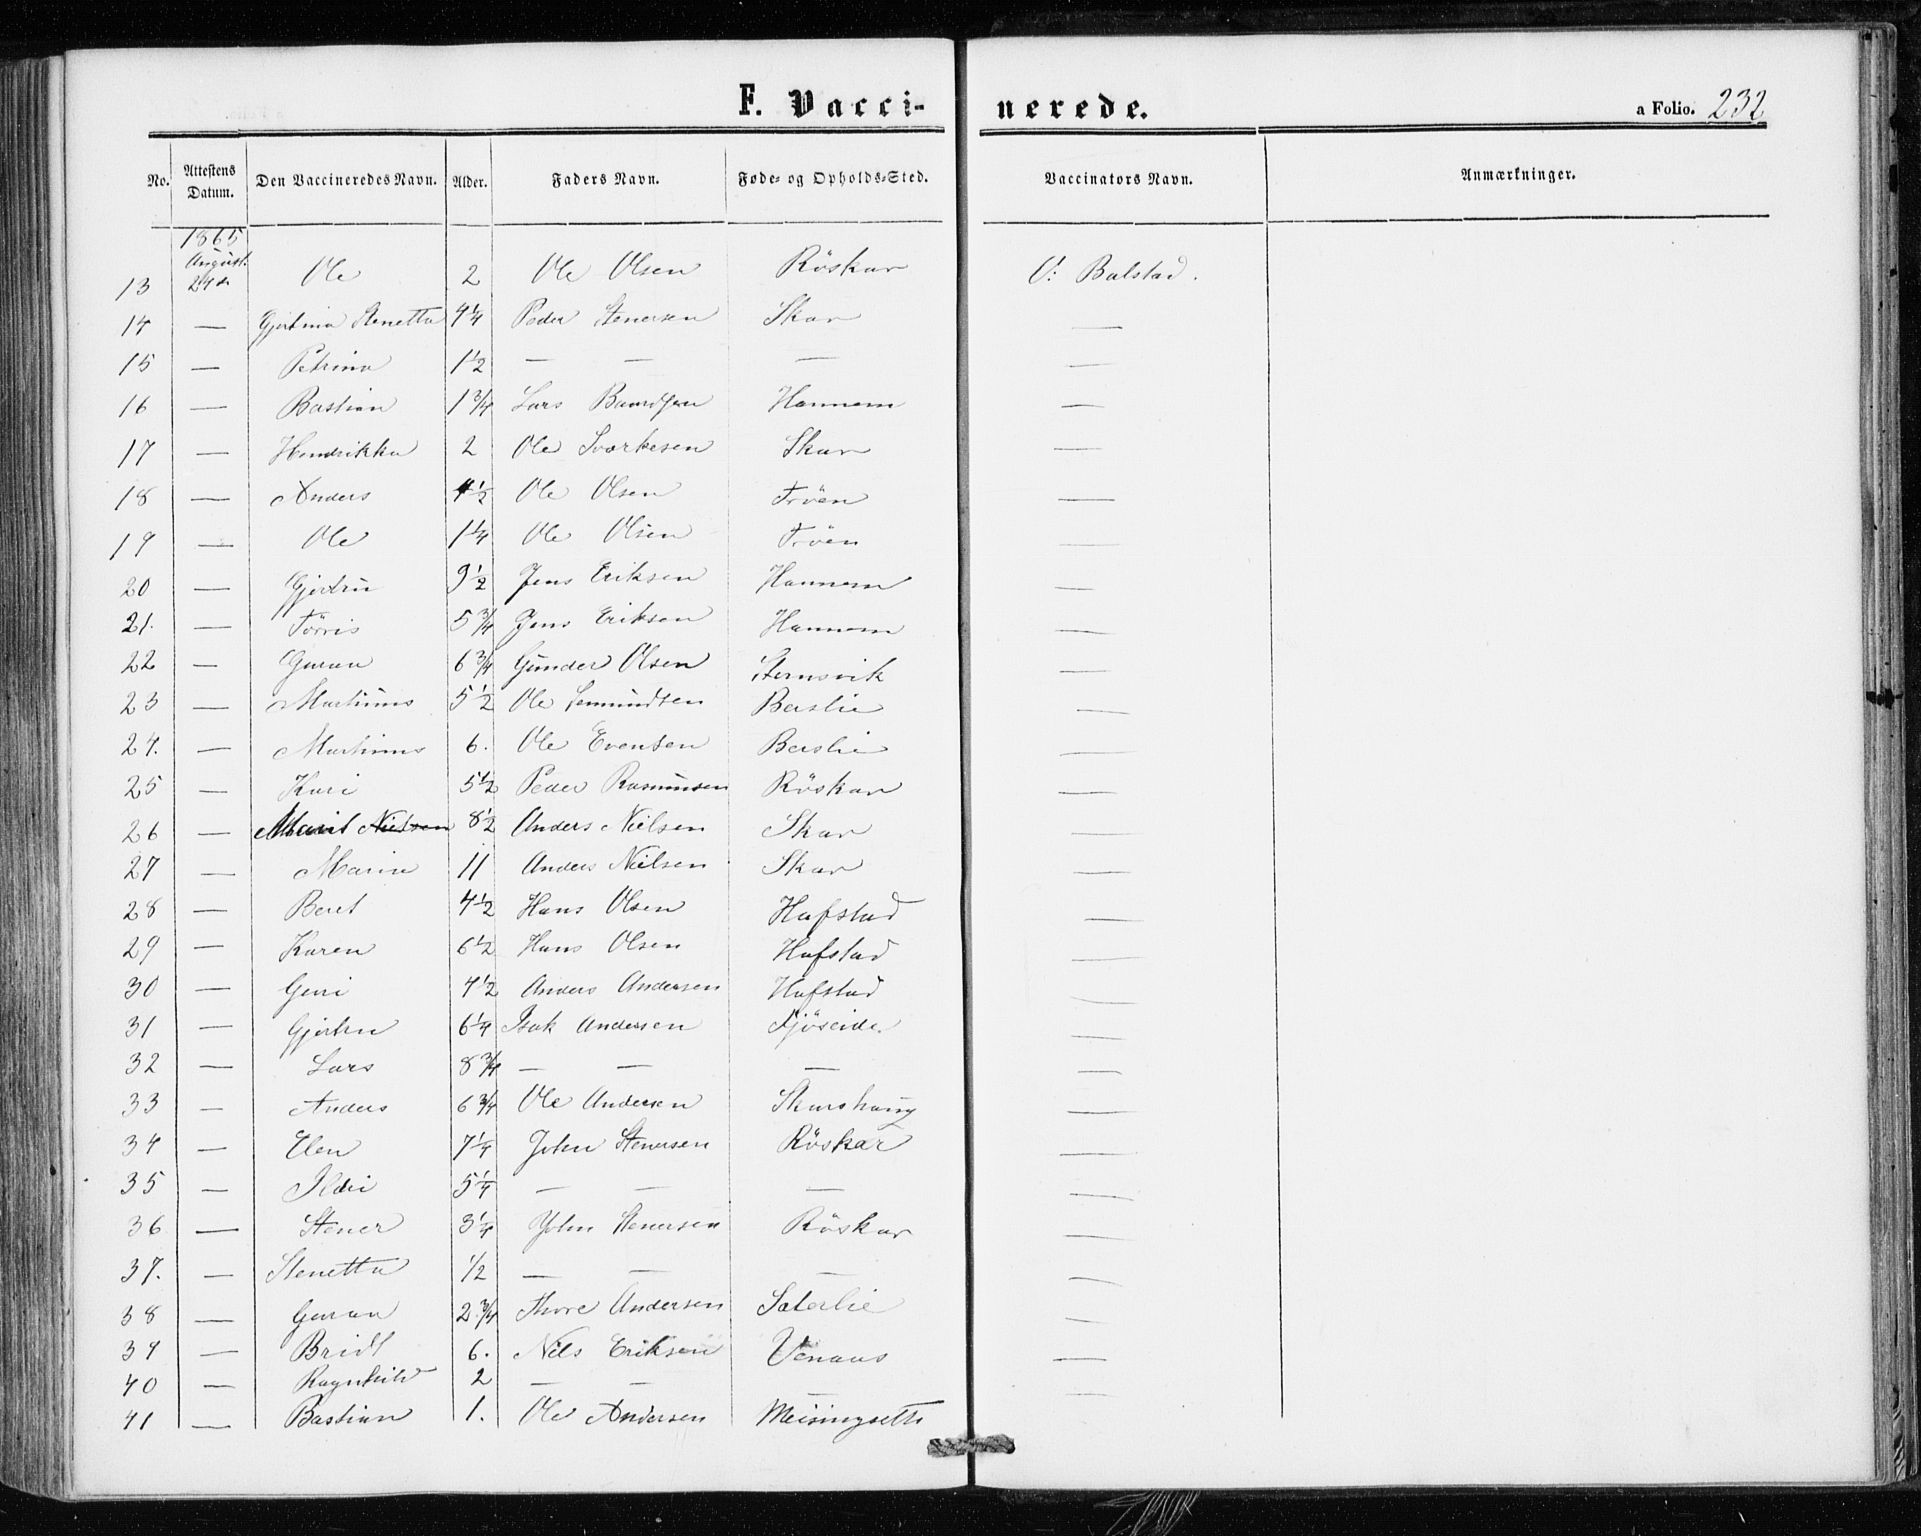 F. Vaccinerede. a Folio. 232
No. Attestens Datum. Den Vaccineredes Navn. Alder. Faders Navn. Føde- og Opholds-Sted. Vaccinators Navn. Anmærkninger.
1865
August
13 24de Ole 2 Ole Olsen Röskar O: Balstad.
14 — Gjertina Stenetta 4 1/4 Peder Stenersen Skar —
15 — Petrina 1 1/2 — — — —
16 — Bastian 1 3/4 Lars Hannem —
17 — Hendrikka 2 Ole Sværkesen Skar —
18 — Anders 4 1/2 Ole Olsen Tröen —
19 — Ole 1 1/4 Ole Olsen Tröen —
20 — Gjertru 9 1/2 Jens Eriksen Hannem —
21. — Törris 5 3/4 Jens Eriksen Hannem —
22 — Guran 6 3/4 Gunder Olsen —
23 — Martinus 5 1/2 Ole Semundsen Berslie —
24. — Martinus 6. Ole Evensen Berslie —
25 — Kari 5 1/2 Peder Rasmussen Röskar —
26 — Marit Nielsen 8 1/2 Anders Nielsen Skar —
27 — Marin 11 Anders Nielsen Skar —
28 — Beret 4 1/2 Hans Olsen Hafstad —
29 — Karen 6 1/2 Hans Olsen Hafstad —
30 — Guri 4 1/2 Anders Andersen Hafstad —
31 — Gjertru 6 1/4 Isak Andersen —
32 — Lars 8 3/4 — — — —
33 — Anders 6 3/4 Ole Andersen Skarshaug —
34 — Elen 7 1/4 John Stenersen Röskar —
35 — Ildri 5 1/4 — — — —
36 — Stener 3 1/4 John Stenersen Röskar —
37. — Stenetta 1/2 — — — —
38 — Guran 2 3/4 Thore Andersen Saterlie —
39 — Bridt 6. Nils Eriksen Venaus —
40 — Ragnhild 2 — — — —
41 — Bastian 1. Ole Andersen Meisingseth